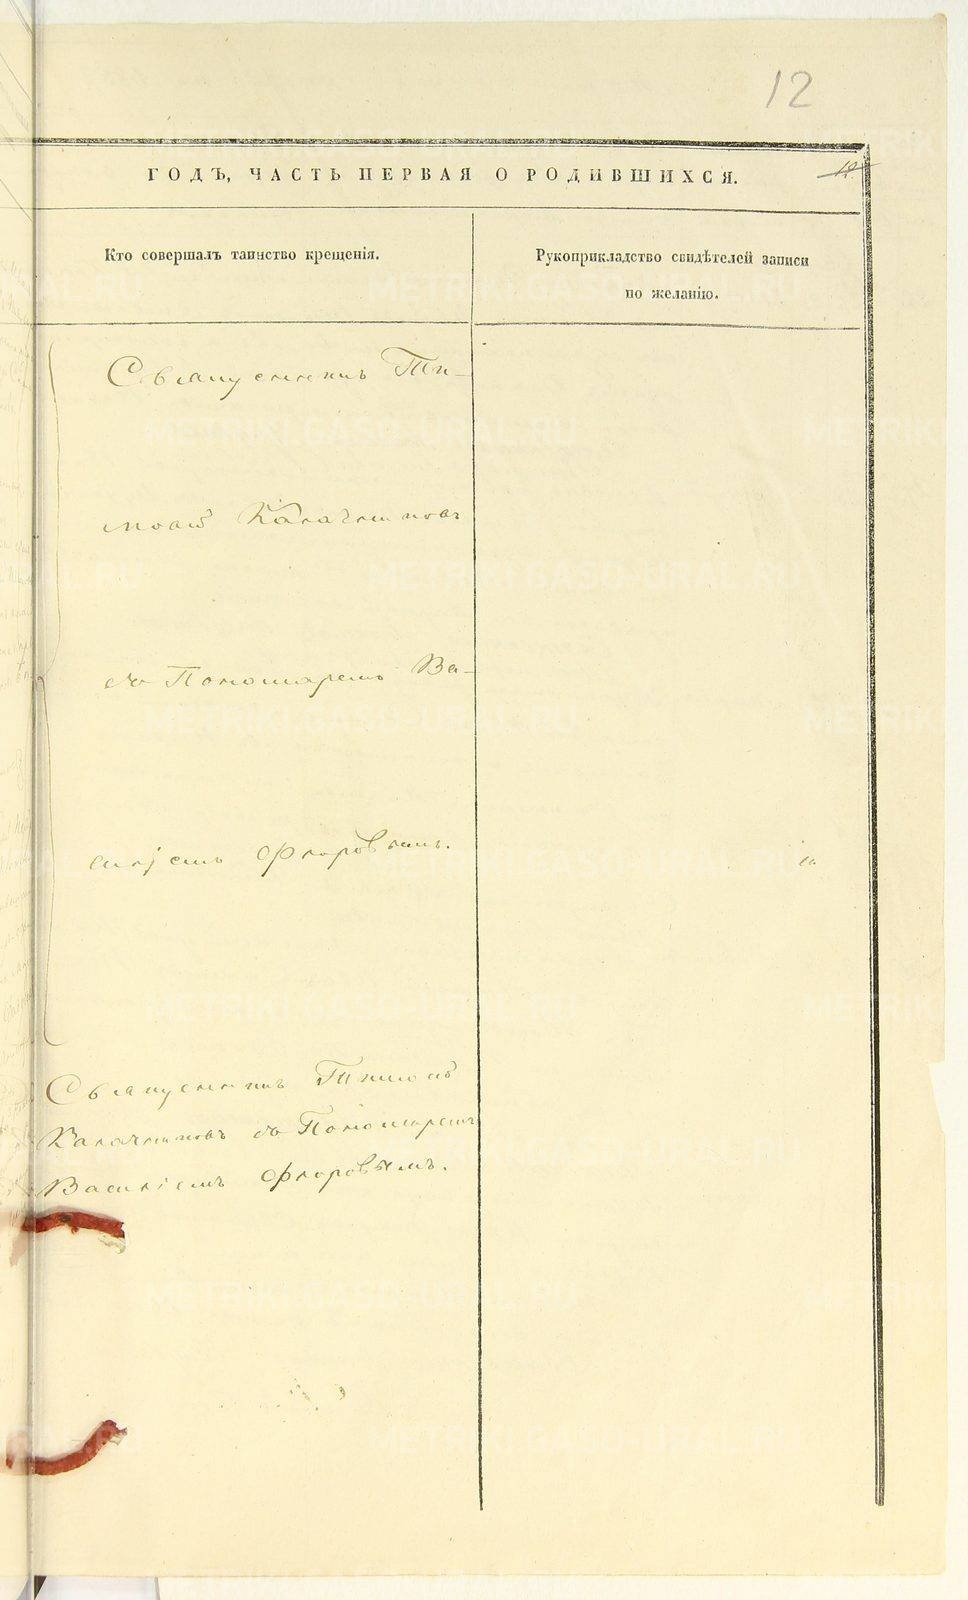 12
ГОДЪ, ЧАСТЬ ПЕРВАЯ О РОДИВШИХСЯ.
Кто совершалъ таинство крещенія.
Рукоприкладство свидѣтелей записи
по желанію.
Священникъ Ти-
моѳей Калачниковъ
съ Пономаремъ Ва-
силіемъ Флоровымъ.
Священникъ Тимоѳей
Калачниковъ съ Пономаремъ
Василіемъ Флоровымъ.
METRIKI.GASO-URAL.RU